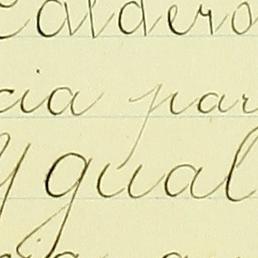 Caldero
cia par
y gual